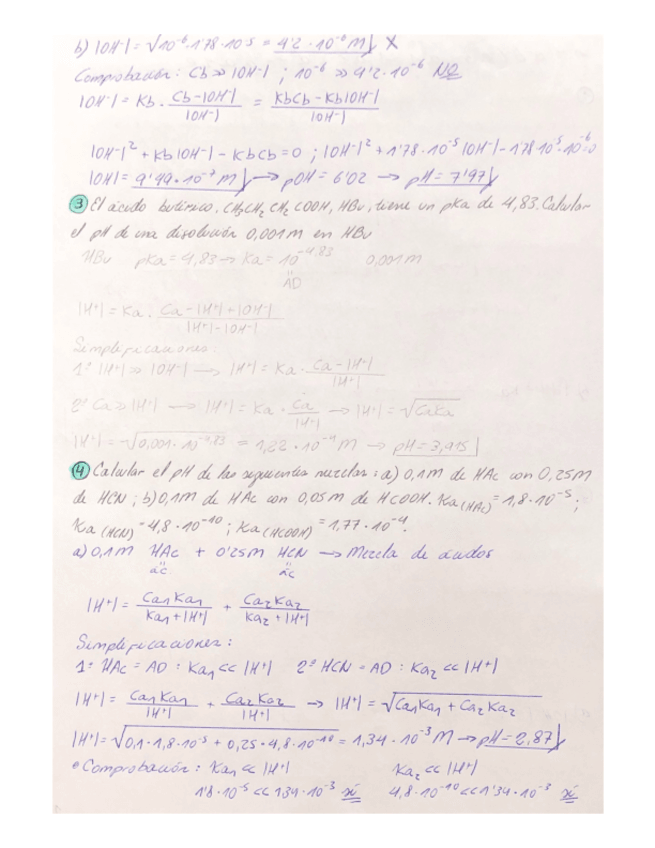 b) |OH-| = √10⁻⁶·1'78·10⁻⁵ = 4'2·10⁻⁶ M X
Comprobación: Cb >> |OH-| ; 10⁻⁶ >> 4'2·10⁻⁶ NO
|OH-| = Kb · (Cb-|OH-|)/|OH-| = (KbCb - Kb|OH-|)/|OH-|
|OH-|² + Kb|OH-| - KbCb = 0 ; |OH-|² + 1'78·10⁻⁵|OH-| - 1'78·10⁻⁵·10⁻⁶ = 0
|OH| = 9'49·10⁻⁷ M → pOH = 6'02 → pH = 7'97
③ El ácido butírico, CH₃CH₂CH₂COOH, HBu, tiene un pKa de 4,83. Calcular
el pH de una disolución 0,001M en HBu
HBu pKa = 4,83 → Ka = 10⁻⁴·⁸³ 0,001M
AD
|H+| = Ka · (Ca - |H+| + |OH-|)/(|H+| - |OH-|)
Simplificaciones:
1ª |H+| >> |OH-| → |H+| = Ka · (Ca - |H+|)/|H+|
2ª Ca >> |H+| → |H+| = Ka · Ca/|H+| → |H+| = √CaKa
|H+| = √0,001·10⁻⁴·⁸³ = 1,22·10⁻⁴ M → pH = 3,915
④ Calcular el pH de las siguientes mezclas: a) 0,1M de HAc con 0,25M
de HCN ; b) 0,1M de HAc con 0,05M de HCOOH. Ka(HAc) = 1,8·10⁻⁵ ;
Ka(HCN) = 4,8·10⁻¹⁰ ; Ka(HCOOH) = 1,77·10⁻⁴.
a) 0,1M HAc + 0'25M HCN → Mezcla de ácidos
ác ác
|H+| = Ca₁Ka₁/(Ka₁+|H+|) + Ca₂Ka₂/(Ka₂+|H+|)
Simplificaciones:
1ª HAc = AD : Ka₁ << |H+| 2ª HCN = AD : Ka₂ << |H+|
|H+| = Ca₁Ka₁/|H+| + Ca₂Ka₂/|H+| → |H+| = √Ca₁Ka₁ + Ca₂Ka₂
|H+| = √0,1·1,8·10⁻⁵ + 0,25·4,8·10⁻¹⁰ = 1,34·10⁻³ M → pH = 2,87
• Comprobación: Ka₁ << |H+| Ka₂ << |H+|
1'8·10⁻⁵ << 1'34·10⁻³ sí 4,8·10⁻¹⁰ << 1'34·10⁻³ sí